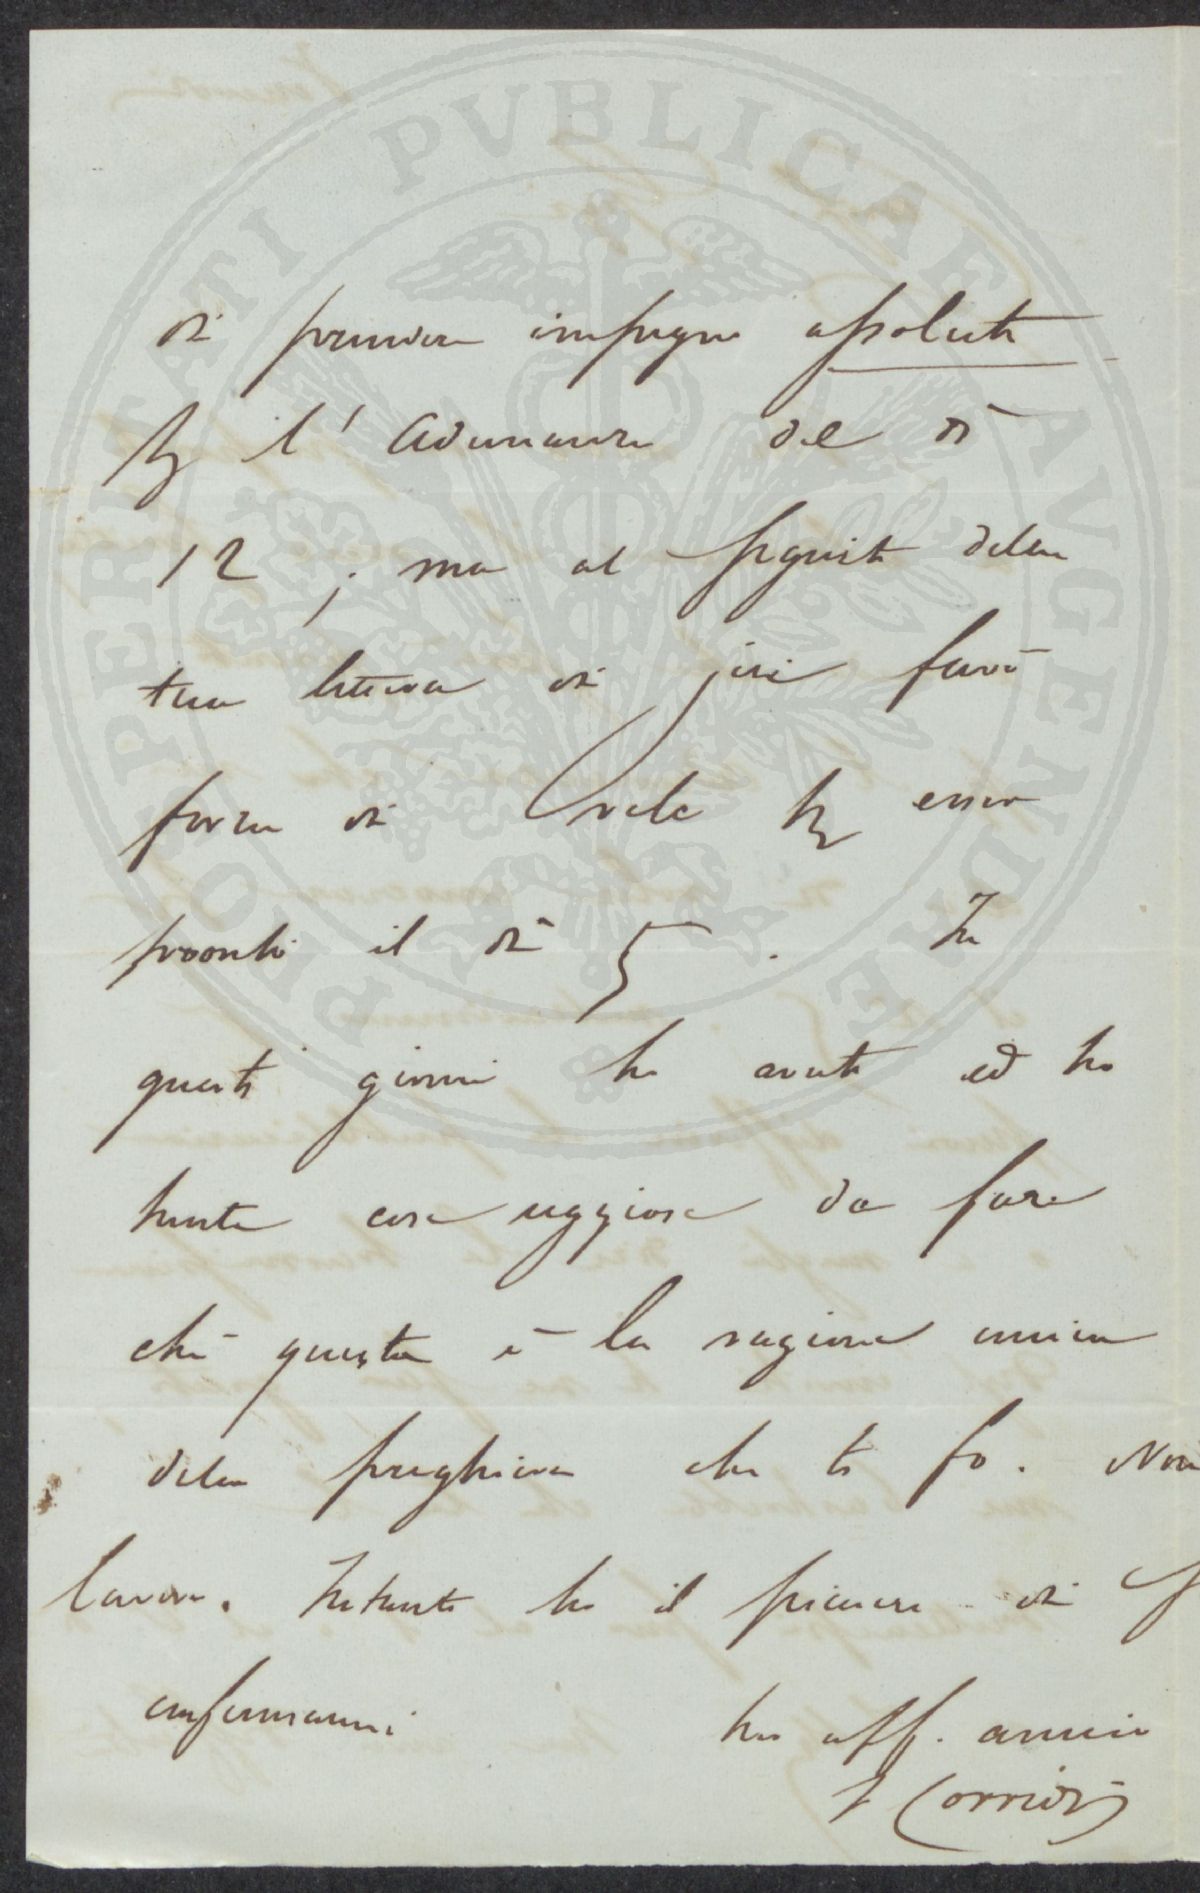 di prendere impegno assoluto
per l'Adunanza del dì
12; ma al seguito della
tua lettera di jeri farò
forza di vele per esser
pronto il dì 5. In
questi giorni ho avuto ed ho
tante cose uggiose da fare
chè questa è la ragione unica
della preghiera che ti fo. Non
lavoro. Intanto ho il piacere di
confermarmi
tuo aff. amico
F Corridi
PROSPERITATI PVBLICAE AVGENDAE